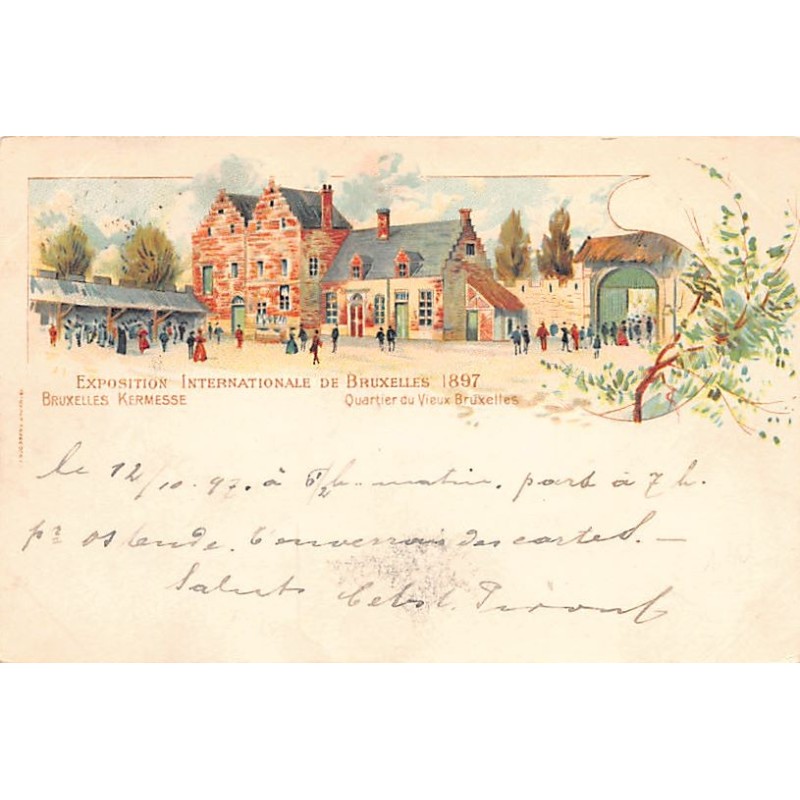 EXPOSITION INTERNATIONALE DE BRUXELLES 1897
BRUXELLES KERMESSE
Quartier du Vieux Bruxelles
le 12/10.97. à h. matin, part à 7 h.
pr Ostende. T'enverrai des cartes. —
Saluts